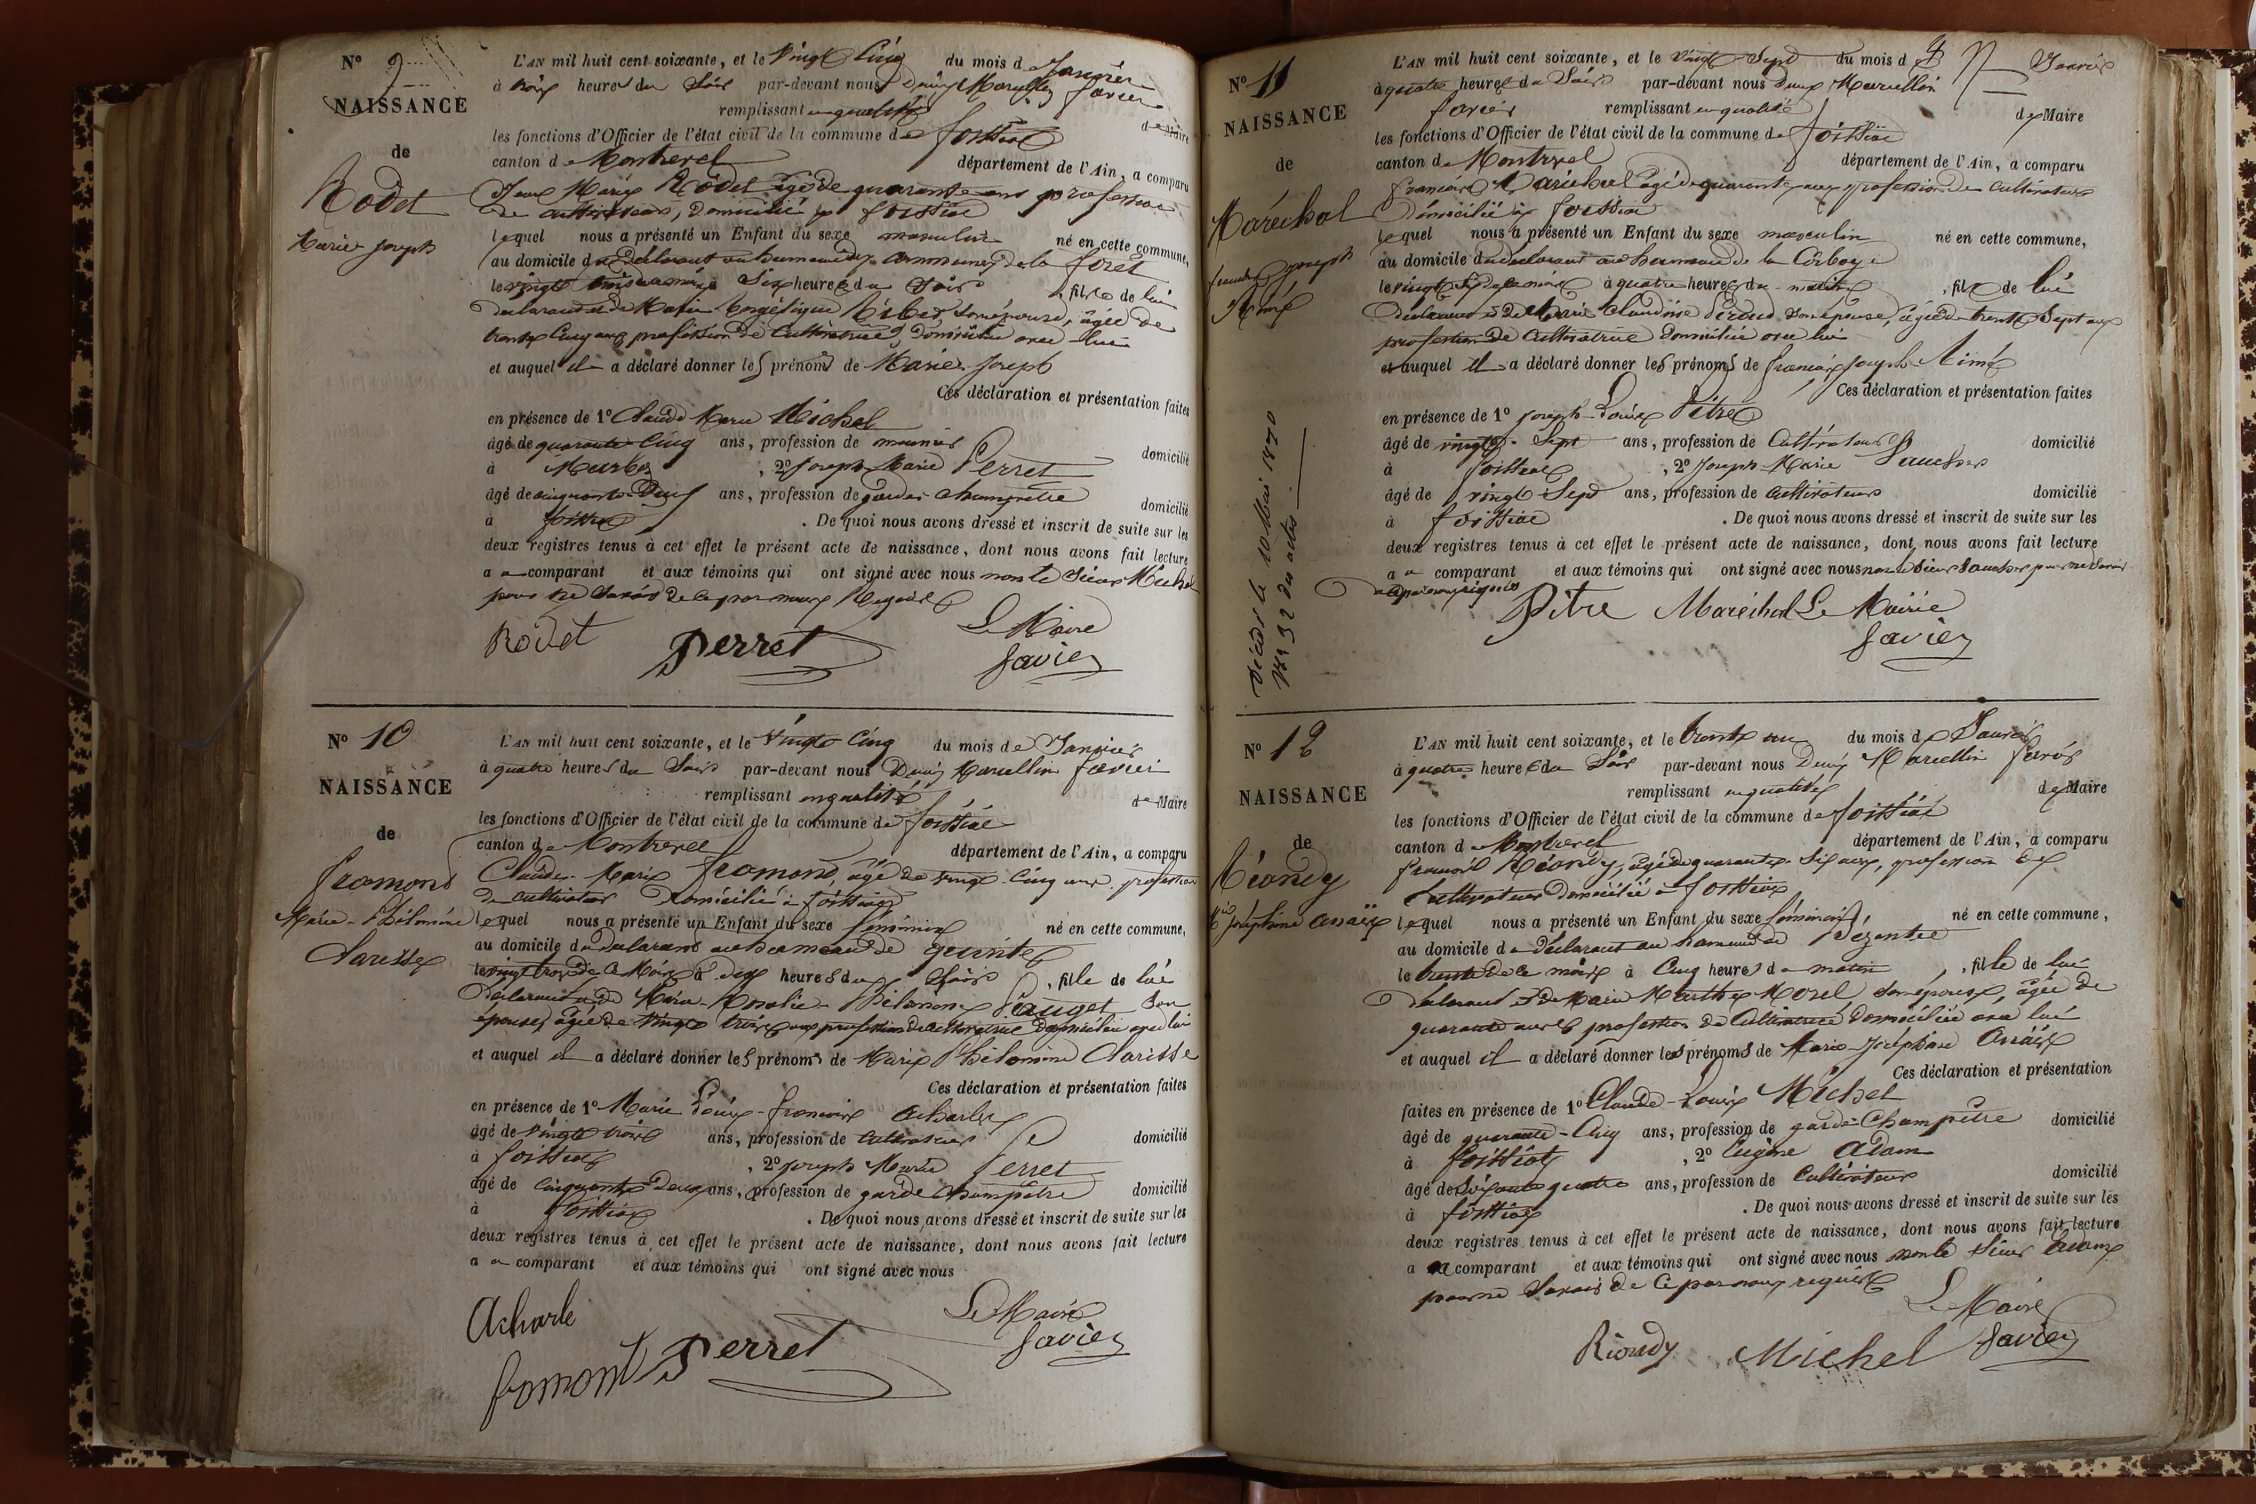 N° 9
NAISSANCE
de
Rodet
Marie Joseph
L'AN mil huit cent soixante, et le vingt Cinq du mois de Janvier
à trois heures du Soir par-devant nous Denis Marcellin favier
remplissant en qualité de Maire
les fonctions d'Officier de l'état civil de la commune de foissiat
canton de Montrevel département de l'Ain, a comparu
Marie Rodet âgé de quarante ans profession
de cultivateur, domicilié à foissiat
lequel nous a présenté un Enfant du sexe masculin né en cette commune,
au domicile du déclarant au hameau de la foret
le vingt trois à Six heures du Soir , fils de lui
déclarant et de Marie Angélique son épouse, âgée de
trente Cinq ans profession de Cultivatrice, Domiciliée avec lui
et auquel il a déclaré donner les prénoms de Marie Joseph
Ces déclaration et présentation faites
en présence de 1° Claude Marie Michel
âgé de quarante Cinq ans, profession de meunier domicilié
à , 2° Joseph Marie Perret
âgé de cinquante Deux ans, profession de garde champetre domicilié
à foissiat . De quoi nous avons dressé et inscrit de suite sur les
deux registres tenus à cet effet le présent acte de naissance, dont nous avons fait lecture
au comparant et aux témoins qui ont signé avec nous non le Sieur Michel
pour ne Savoir de ce par nous Requis
Rodet Perret Le Maire
favier
N° 10
NAISSANCE
de
fromont
Marie Philomène
Clarisse
L'AN mil huit cent soixante, et le vingt Cinq du mois de Janvier
à quatre heures du Soir par-devant nous Denis Marcellin favier
remplissant en qualité de Maire
les fonctions d'Officier de l'état civil de la commune de foissiat
canton de Montrevel département de l'Ain, a comparu
Claude Marie fromont, âgé de vingt Cinq ans profession
de cultivateur Domicilié à foissiat
lequel nous a présenté un Enfant du sexe féminin né en cette commune,
au domicile du déclarant au hameau de
le vingt trois de ce Mois à Dix heures du Soir , fille de lui
Déclarant et de Marie Rosalie Philomène Pauget Son
épouse, âgée de vingt trois ans profession de cultivatrice Domiciliée avec lui
et auquel il a déclaré donner les prénoms de Marie Philomène Clarisse
Ces déclaration et présentation faites
en présence de 1° Marie Louis francois acharle
âgé de vingt trois ans, profession de cultivateur domicilié
à foissiat , 2° Joseph Marie Perret
âgé de cinquante Deux ans, profession de garde champêtre domicilié
à foissiat . De quoi nous avons dressé et inscrit de suite sur les
deux registres tenus à cet effet le présent acte de naissance, dont nous avons fait lecture
au comparant et aux témoins qui ont signé avec nous
Acharle Le Maire
fromont Perret favier
N° 11
NAISSANCE
de
Maréchal
francois joseph
Aimé
Décédé le 10 Mai 1870
N° 32 des actes
L'AN mil huit cent soixante, et le vingt Sept du mois de Janvier
à quatre heures du Soir par-devant nous Denis Marcellin
favier remplissant en qualité de Maire
les fonctions d'Officier de l'état civil de la commune de foissiat
canton de Montrevel département de l'Ain, a comparu
francois Maréchal âgé de quarante ans profession de cultivateur
Domicilié à foissiat
lequel nous a présenté un Enfant du sexe masculin né en cette commune,
au domicile du déclarant au hameau de la Corboye
le vingt Sept de ce mois à quatre heures du matin , fils de lui
Déclarant et de Marie Claudine son épouse, âgée de trente Sept ans
profession de Cultivatrice Domiciliée avec lui
et auquel il a déclaré donner les prénoms de francois Joseph Aimé
Ces déclaration et présentation faites
en présence de 1° Joseph Louis Pitre
âgé de vingt Sept ans, profession de Cultivateur domicilié
à foissiat , 2° Joseph Marie
âgé de vingt Sept ans, profession de Cultivateur domicilié
à foissiat . De quoi nous avons dressé et inscrit de suite sur les
deux registres tenus à cet effet le présent acte de naissance, dont nous avons fait lecture
au comparant et aux témoins qui ont signé avec nous non le Sieur pour ne Savoir
de ce par nous requis
Pitre Maréchal Le Maire
favier
N° 12
NAISSANCE
de
Rioudy
Mie Joséphine Anaïs
L'AN mil huit cent soixante, et le trente un du mois de Janvier
à quatre heures du Soir par-devant nous Denis Marcellin favier
remplissant en qualité de Maire
les fonctions d'Officier de l'état civil de la commune de foissiat
canton de Montrevel département de l'Ain, a comparu
francois Rioudy, âgé de quarante Six ans, profession de
Cultivateur domicilié à foissiat
lequel nous a présenté un Enfant du sexe féminin, né en cette commune,
au domicile du déclarant au hameau de
le trente de ce mois à Cinq heures du matin , fille de lui
déclarant et de Marie Marthe Morel son épouse, âgée de
quarante ans profession de Cultivatrice domiciliée avec lui
et auquel il a déclaré donner les prénoms de Marie Joséphine Anaïs
Ces déclaration et présentation
faites en présence de 1° Claude Louis Michel
âgé de quarante Cinq ans, profession de garde Champêtre domicilié
à foissiat , 2° Eugène Adam
âgé de Soixante quatre ans, profession de Cultivateur domicilié
à foissiat . De quoi nous avons dressé et inscrit de suite sur les
deux registres tenus à cet effet le présent acte de naissance, dont nous avons fait lecture
au comparant et aux témoins qui ont signé avec nous non le Sieur Adam
pour ne Savoir de ce par nous requis
Le Maire
Rioudy Michel favier